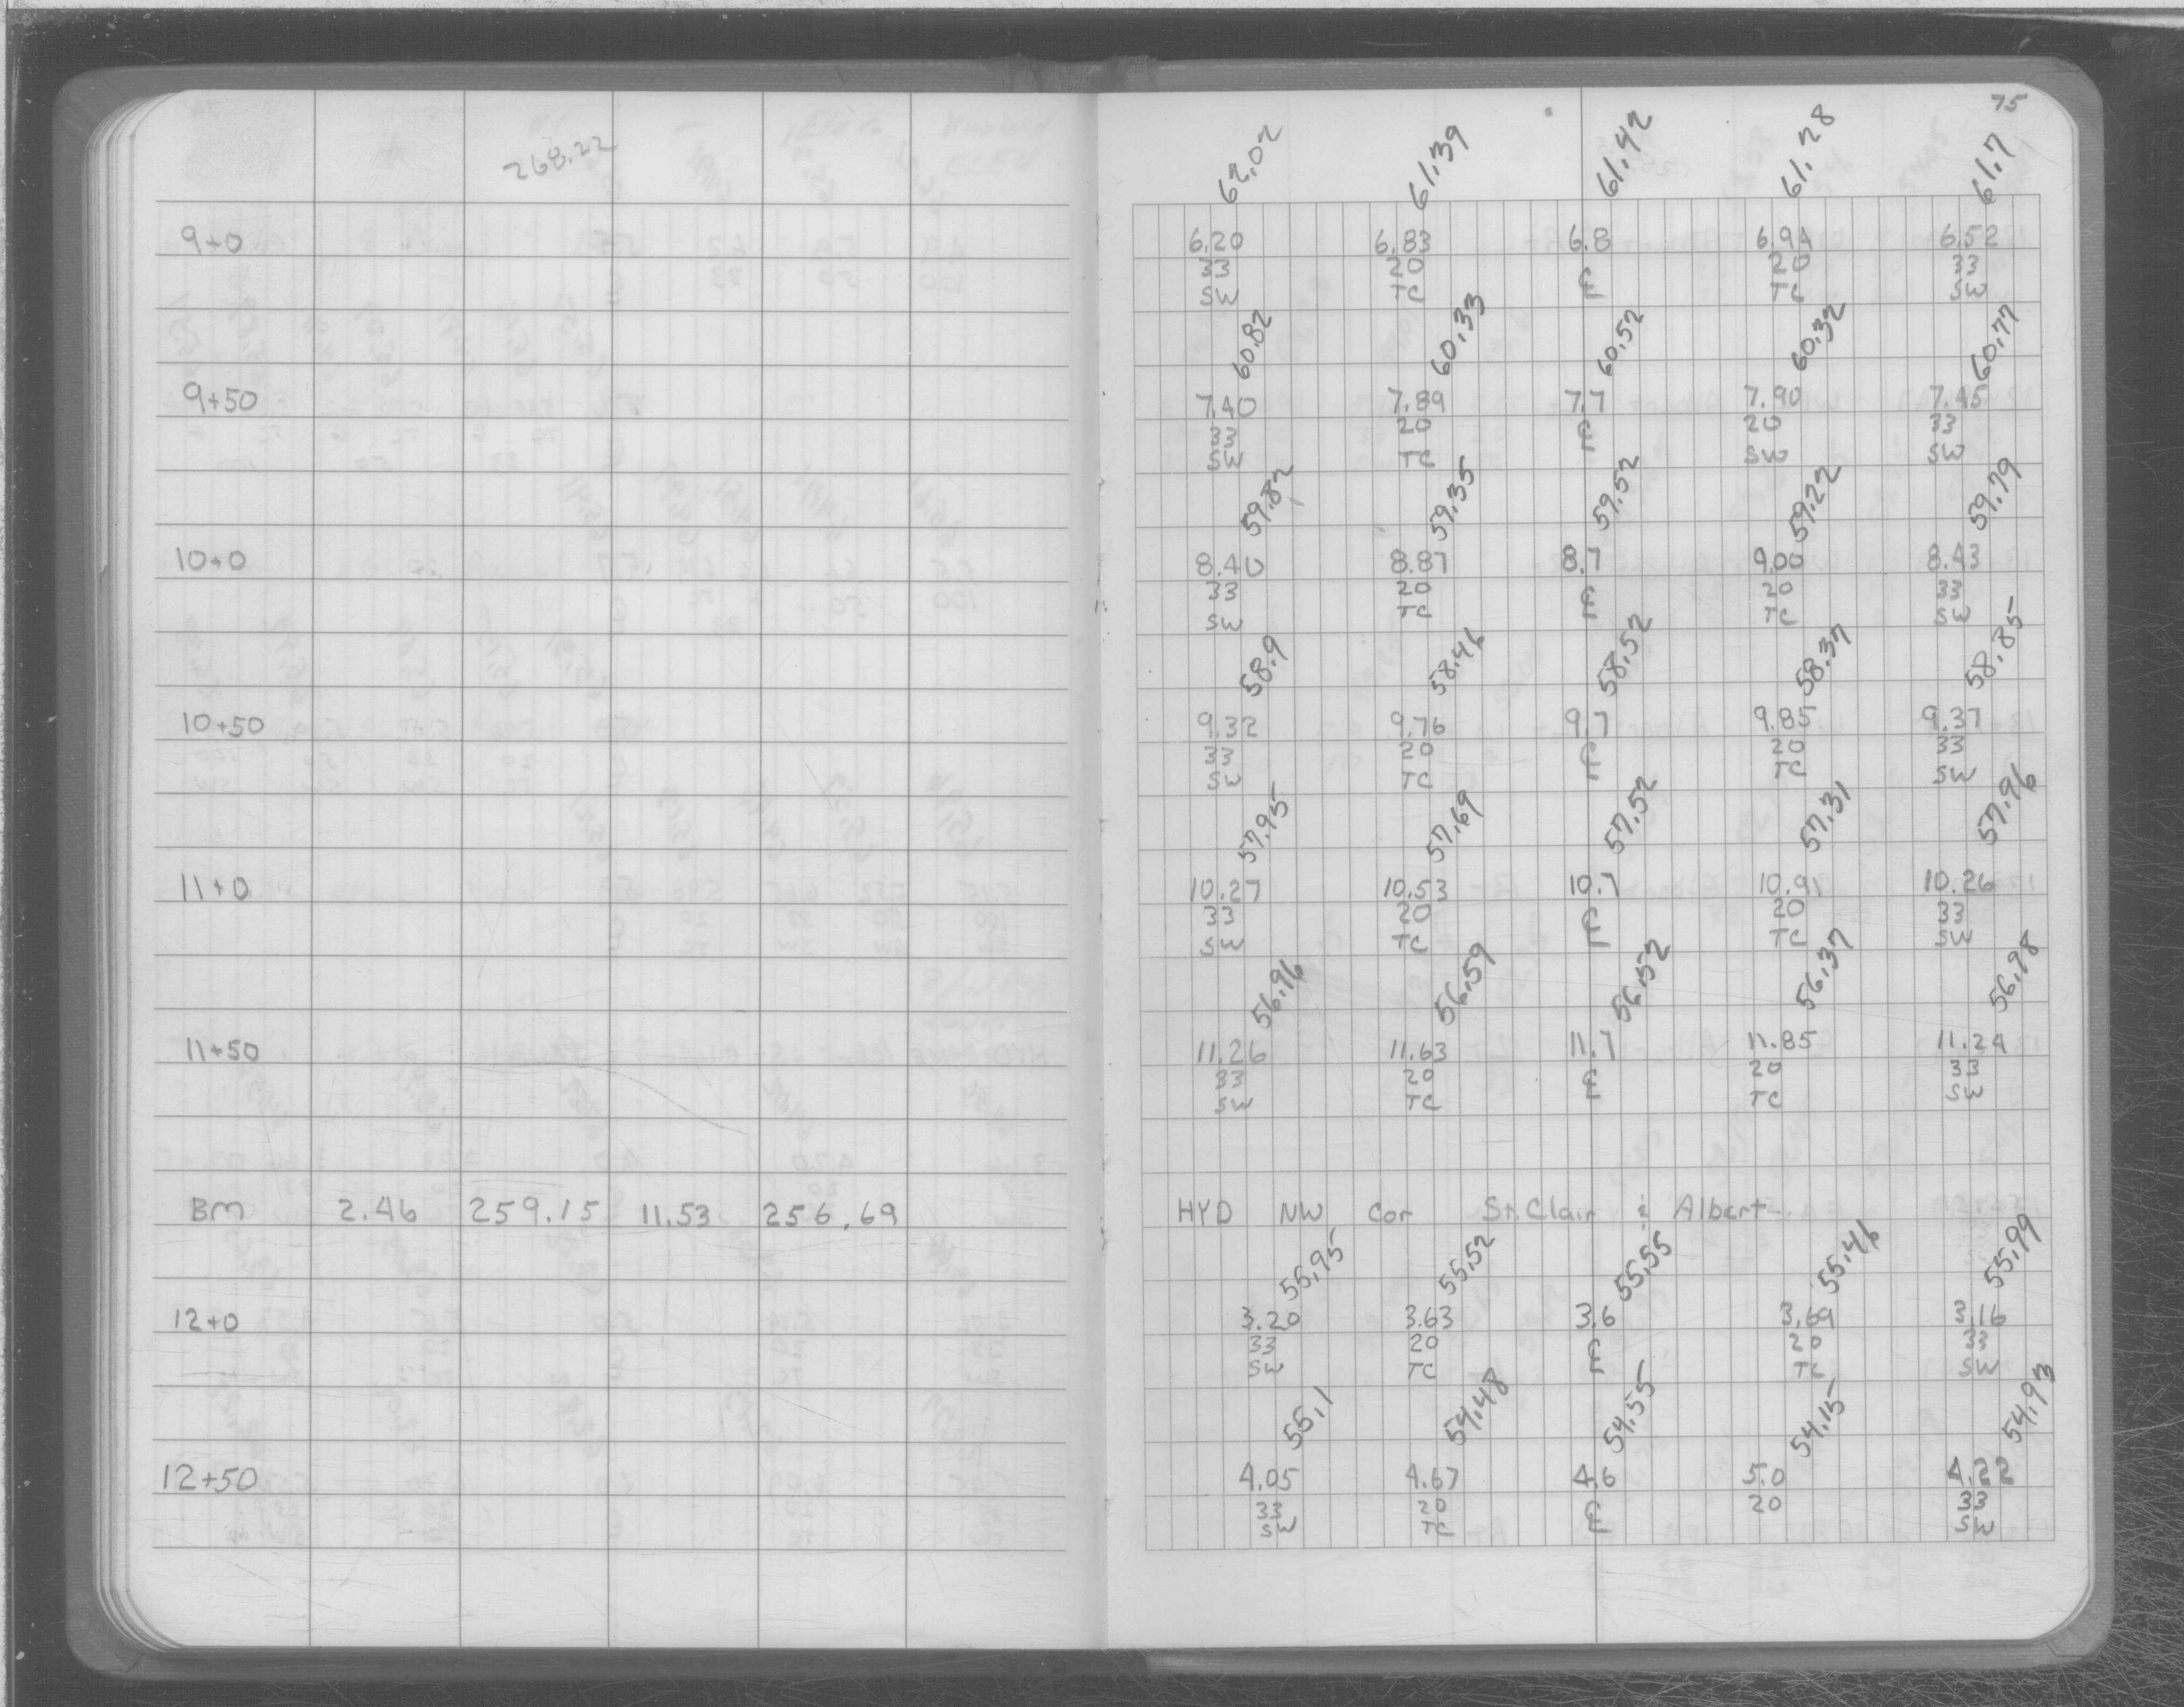 75
268.22
62.02 61.39 61.42 61.28 61.7
9+0 6.20 6.83 6.8 6.94 6.52
33 20 ℄ 20 33
SW TC TC SW
60.82 60.33 60.52 60.32 60.77
9+50 7.40 7.89 7.7 7.90 7.45
33 20 ℄ 20 33
SW TC SW SW
59.82 59.35 59.52 59.22 59.79
10+0 8.40 8.87 8.7 9.00 8.43
33 20 ℄ 20 33
SW TC TC SW
58.9 58.46 58.52 58.37 58.85
10+50 9.32 9.76 9.7 9.85 9.37
33 20 ℄ 20 33
SW TC TC SW
57.95 57.69 57.52 57.31 57.96
11+0 10.27 10.53 10.7 10.91 10.26
33 20 ℄ 20 33
SW TC TC SW
56.96 56.59 56.52 56.37 56.98
11+50 11.26 11.63 11.7 11.85 11.24
33 20 ℄ 20 33
SW TC TC SW
BM 2.46 259.15 11.53 256.69 HYD NW Cor St. Clair & Albert
55.95 55.52 55.55 55.46 55.99
12+0 3.20 3.63 3.6 3.69 3.16
33 20 ℄ 20 33
SW TC TC SW
55.1 54.48 54.55 54.15 54.93
12+50 4.05 4.67 4.6 5.0 4.22
33 20 ℄ 20 33
SW TC SW